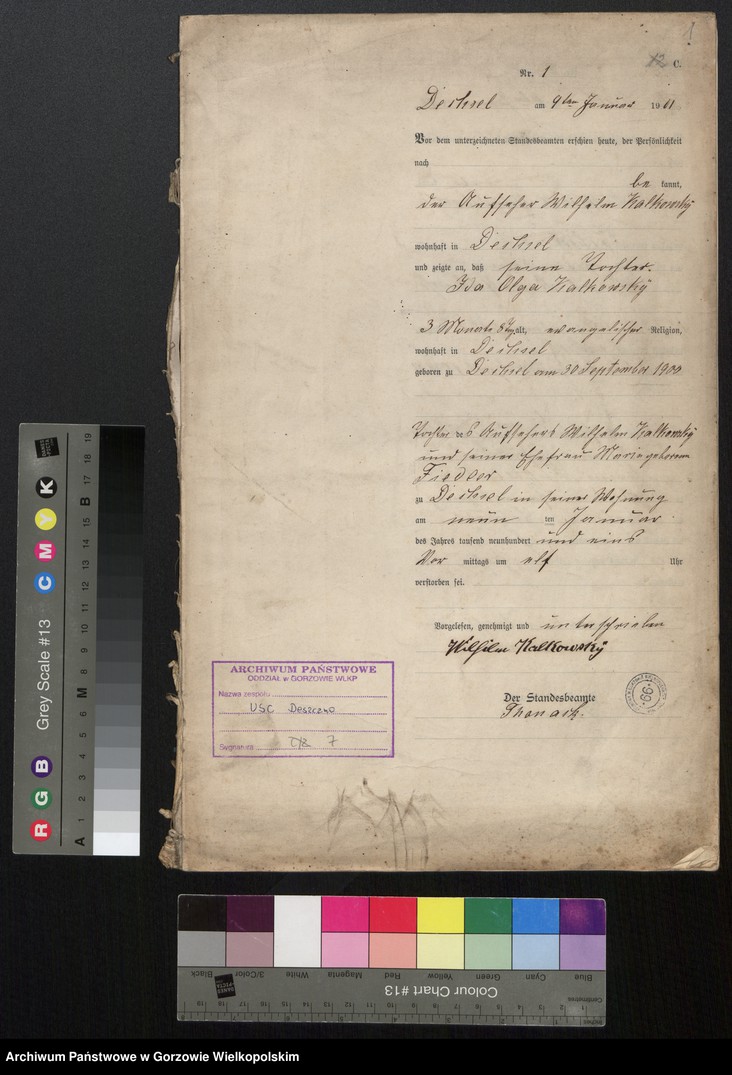 1
12 C.
Nr. 1
Dechsel am 9ten Januar 1901
Vor dem unterzeichneten Standesbeamten erschien heute, der Persönlichkeit
nach
be kannt,
der Aufseher Wilhelm Kalkowsky
wohnhaft in Dechsel
und zeigte an, daß seine Tochter
Ida Olga Kalkowsky
3 Monate alt, evangelischer Religion,
wohnhaft in Dechsel
geboren zu Dechsel am 30 September 1900
Tochter des Aufsehers Wilhelm Kalkowsky
und seiner Ehefrau Marie geborenen
Fiedler
zu Dechsel in seiner Wohnung
am neun ten Januar
des Jahres tausend neunhundert und eins
Vor mittags um elf Uhr
verstorben sei.
Vorgelesen, genehmigt und unterschrieben
Wilhelm Kalkowsky
Der Standesbeamte
ARCHIWUM PAŃSTWOWE
ODDZIAŁ w GORZOWIE WLKP
Nazwa zespołu
USC Deszczno
Sygnatura 7
99
Grey Scale #13
R G B C M Y K
A 1 2 3 4 5 6 M 8 9 10 11 12 13 14 15 B 17 18 19
DANES PICTA
Blue Cyan Green Yellow Red Magenta White 3/Color Black
Colour Chart #13
Centimetres
DANES PICTA
Archiwum Państwowe w Gorzowie Wielkopolskim